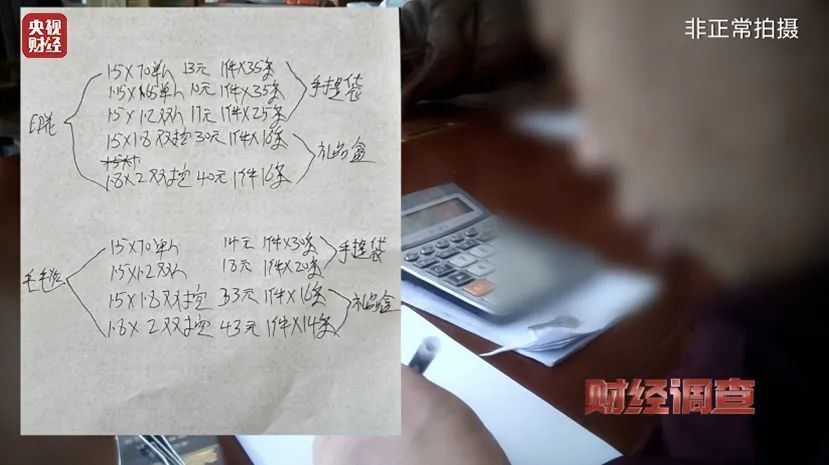 央视
财经
非正常拍摄
印花
15×70单人 13元 1件×35条
1.15×1.65单人 10元 1件×35条
15×1.2双人 17元 1件×25条
手提袋
15×1.8双控 30元 1件×18条
1.8×2双控 40元 1件16条
礼品盒
15×70单人 14元 1件×30条
15×1.2双人 18元 1件×20条
手提袋
15×1.8双控 33元 1件×16条
1.8×2双控 43元 1件×14条
礼品盒
财经调查